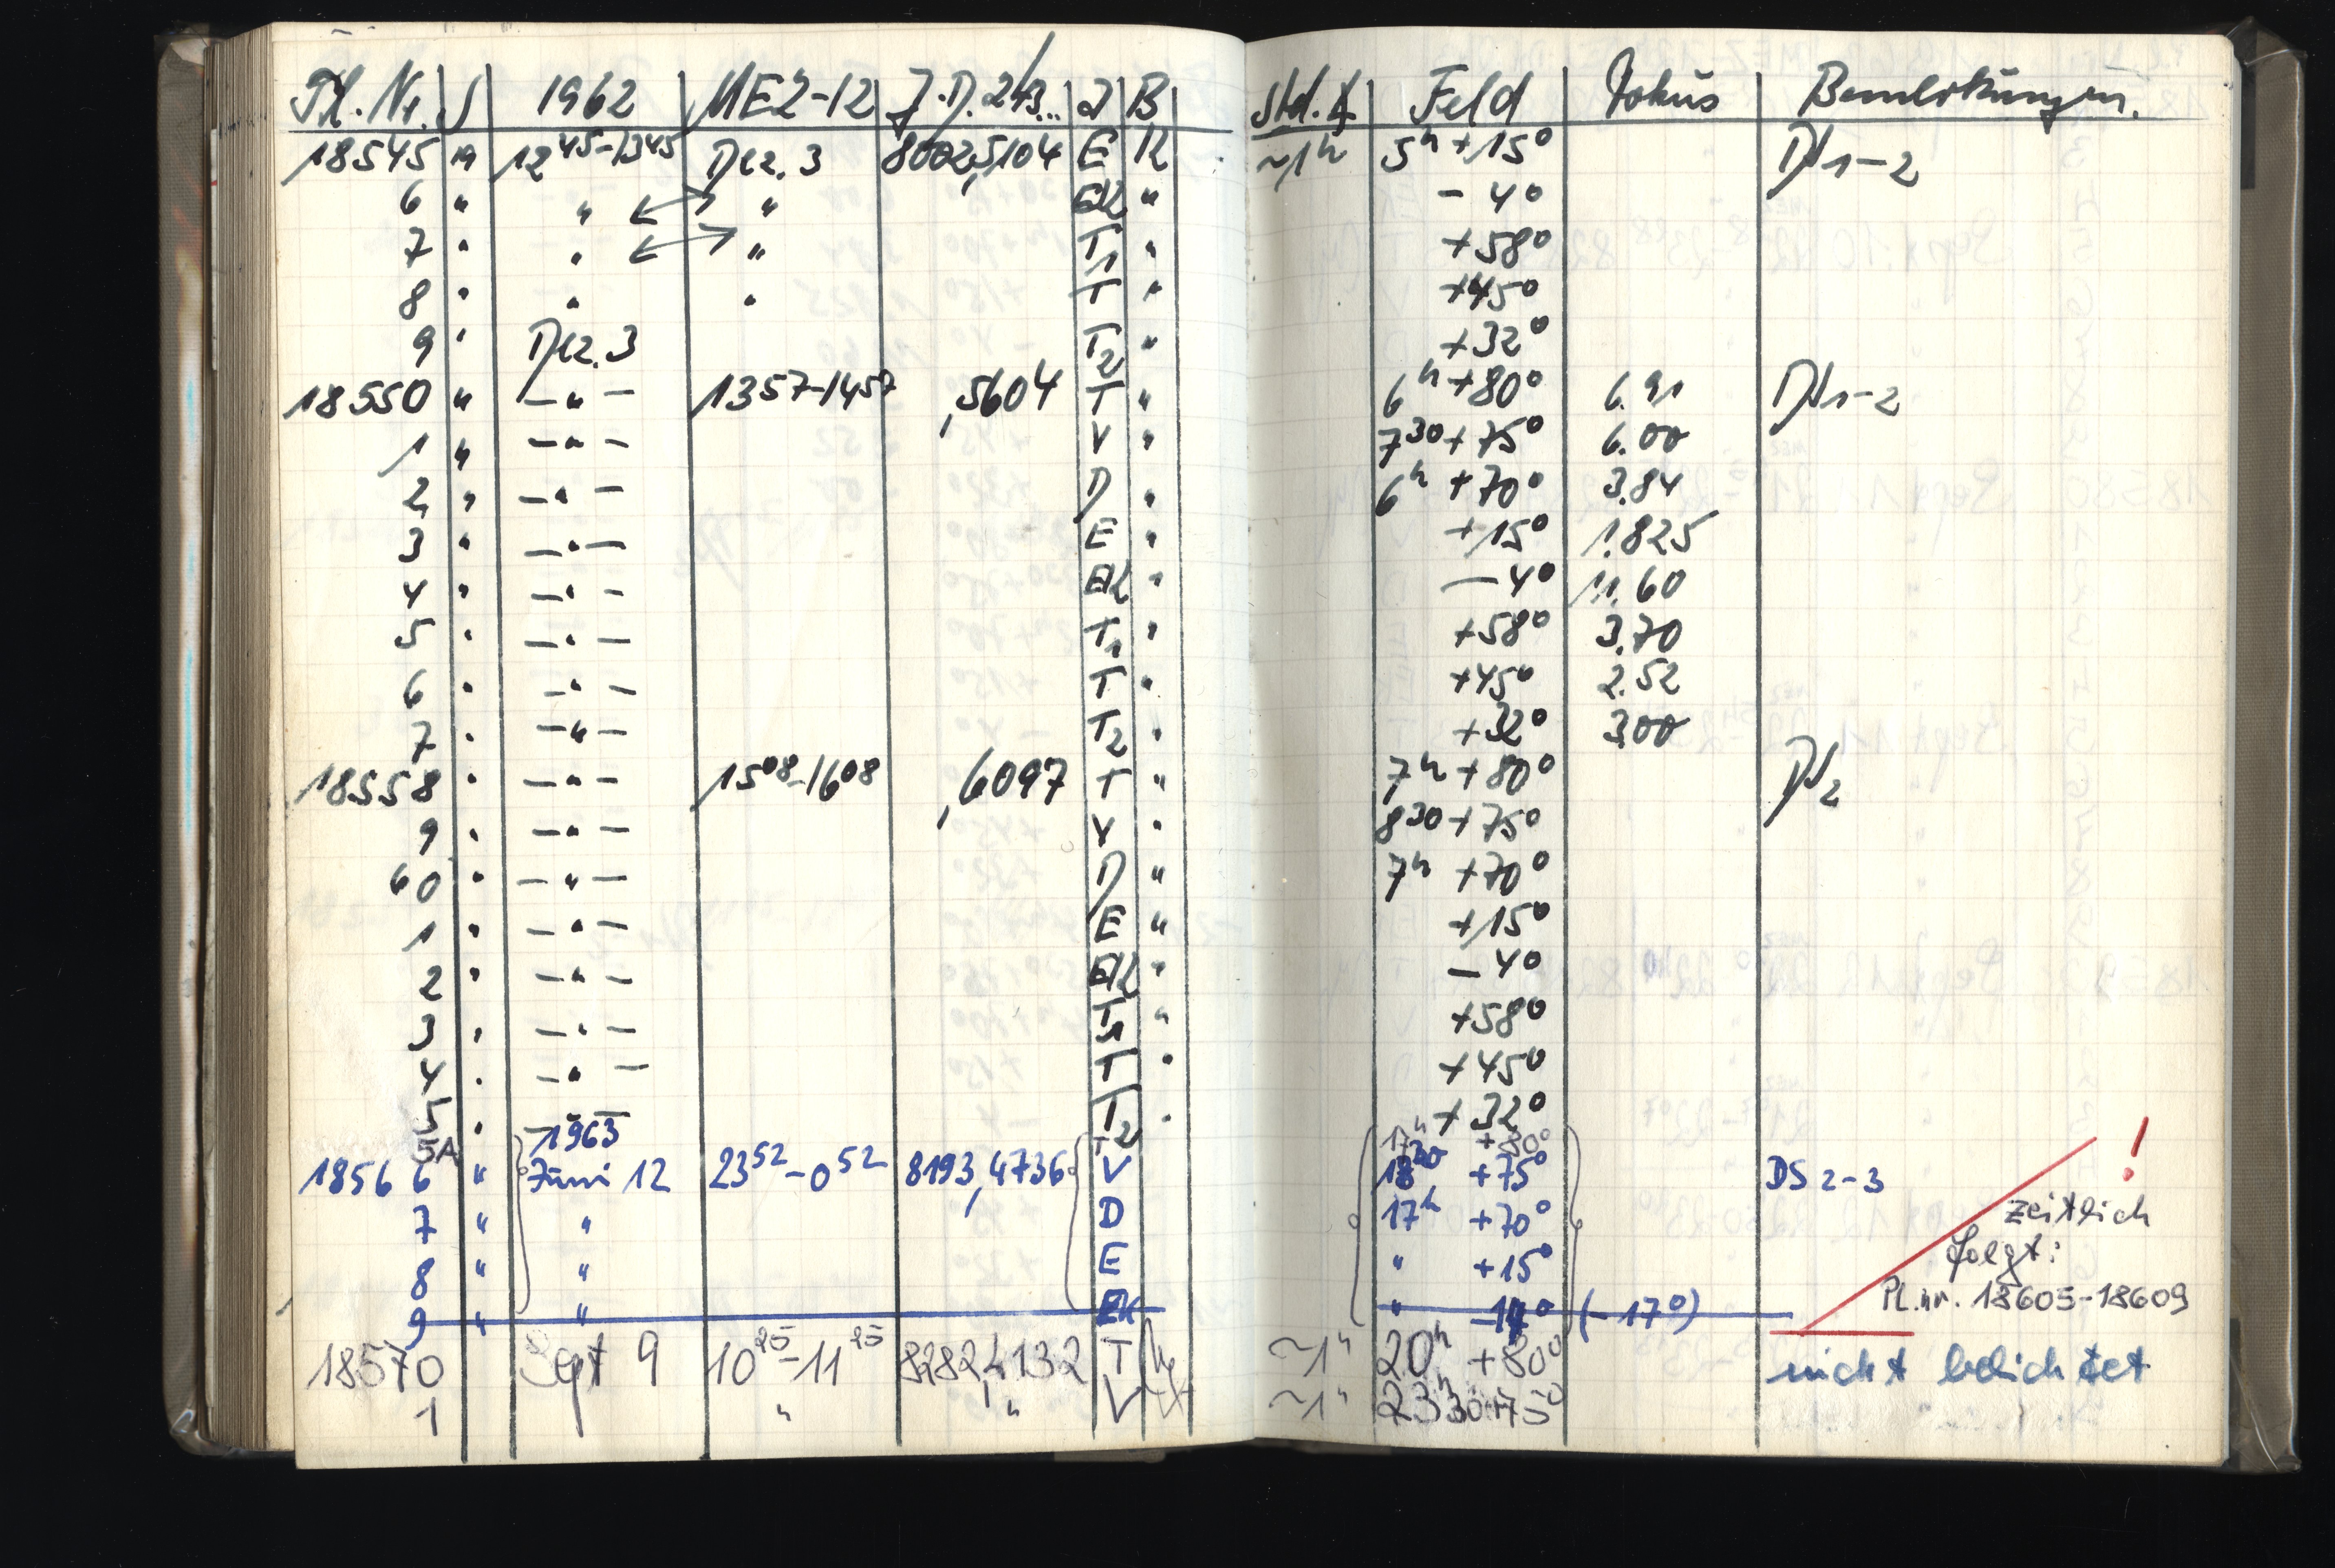 Pl. Nr. S 1962 MEZ-12 J.D. 243... J B Std.∢ Feld Fokus Bemerkungen.
18545 19 12⁴⁵-13⁴⁵ Dez. 3 8002,5104 E K ~1ʰ 5ʰ +15° DN1-2
6 " " ↔ " EK " - 4°
7 " " ↔ " T1 " +58°
8 " " " T " +45°
9 " Dez. 3 T2 " +32°
18550 " -"- 13⁵⁷-14⁵⁷ ,5604 T " 6ʰ +80° 6.91 DN1-2
1 " -"- V " 7³⁰ +75° 6.00
2 " -"- D " 6ʰ +70° 3.84
3 " -"- E " +15° 1.825
4 " -"- EK " -4° 11.60
5 " -"- T1 " +58° 3.70
6 " -"- T " +45° 2.52
7 " -"- T2 " +32° 3.00
18558 " -"- 15⁰⁸-16⁰⁸ ,6097 T " 7ʰ +80° DN2
9 " -"- V " 8³⁰ +75°
60 " -"- D " 7ʰ +70°
1 " -"- E " +15°
2 " -"- EK " -4°
3 " -"- T1 " +58°
4 " -"- T " +45°
5 " -"- T2 " +32°
5A 1963 T 17ʰ +80°
18566 " Juni 12 23⁵²-0⁵² 8193,4736 V 18³⁰ +75° DS 2-3 !
7 " " D 17ʰ +70° zeitlich
8 " " E " +15° folgt:
9 " " EK " -14° (-17°) Pl.nr. 18605-18609
18570 Sept 9 10²⁵-11²⁵ 8282,4132 T ~1ʰ 20ʰ +80° nicht belichtet
1 " " V ~1ʰ 23ʰ30 +75°